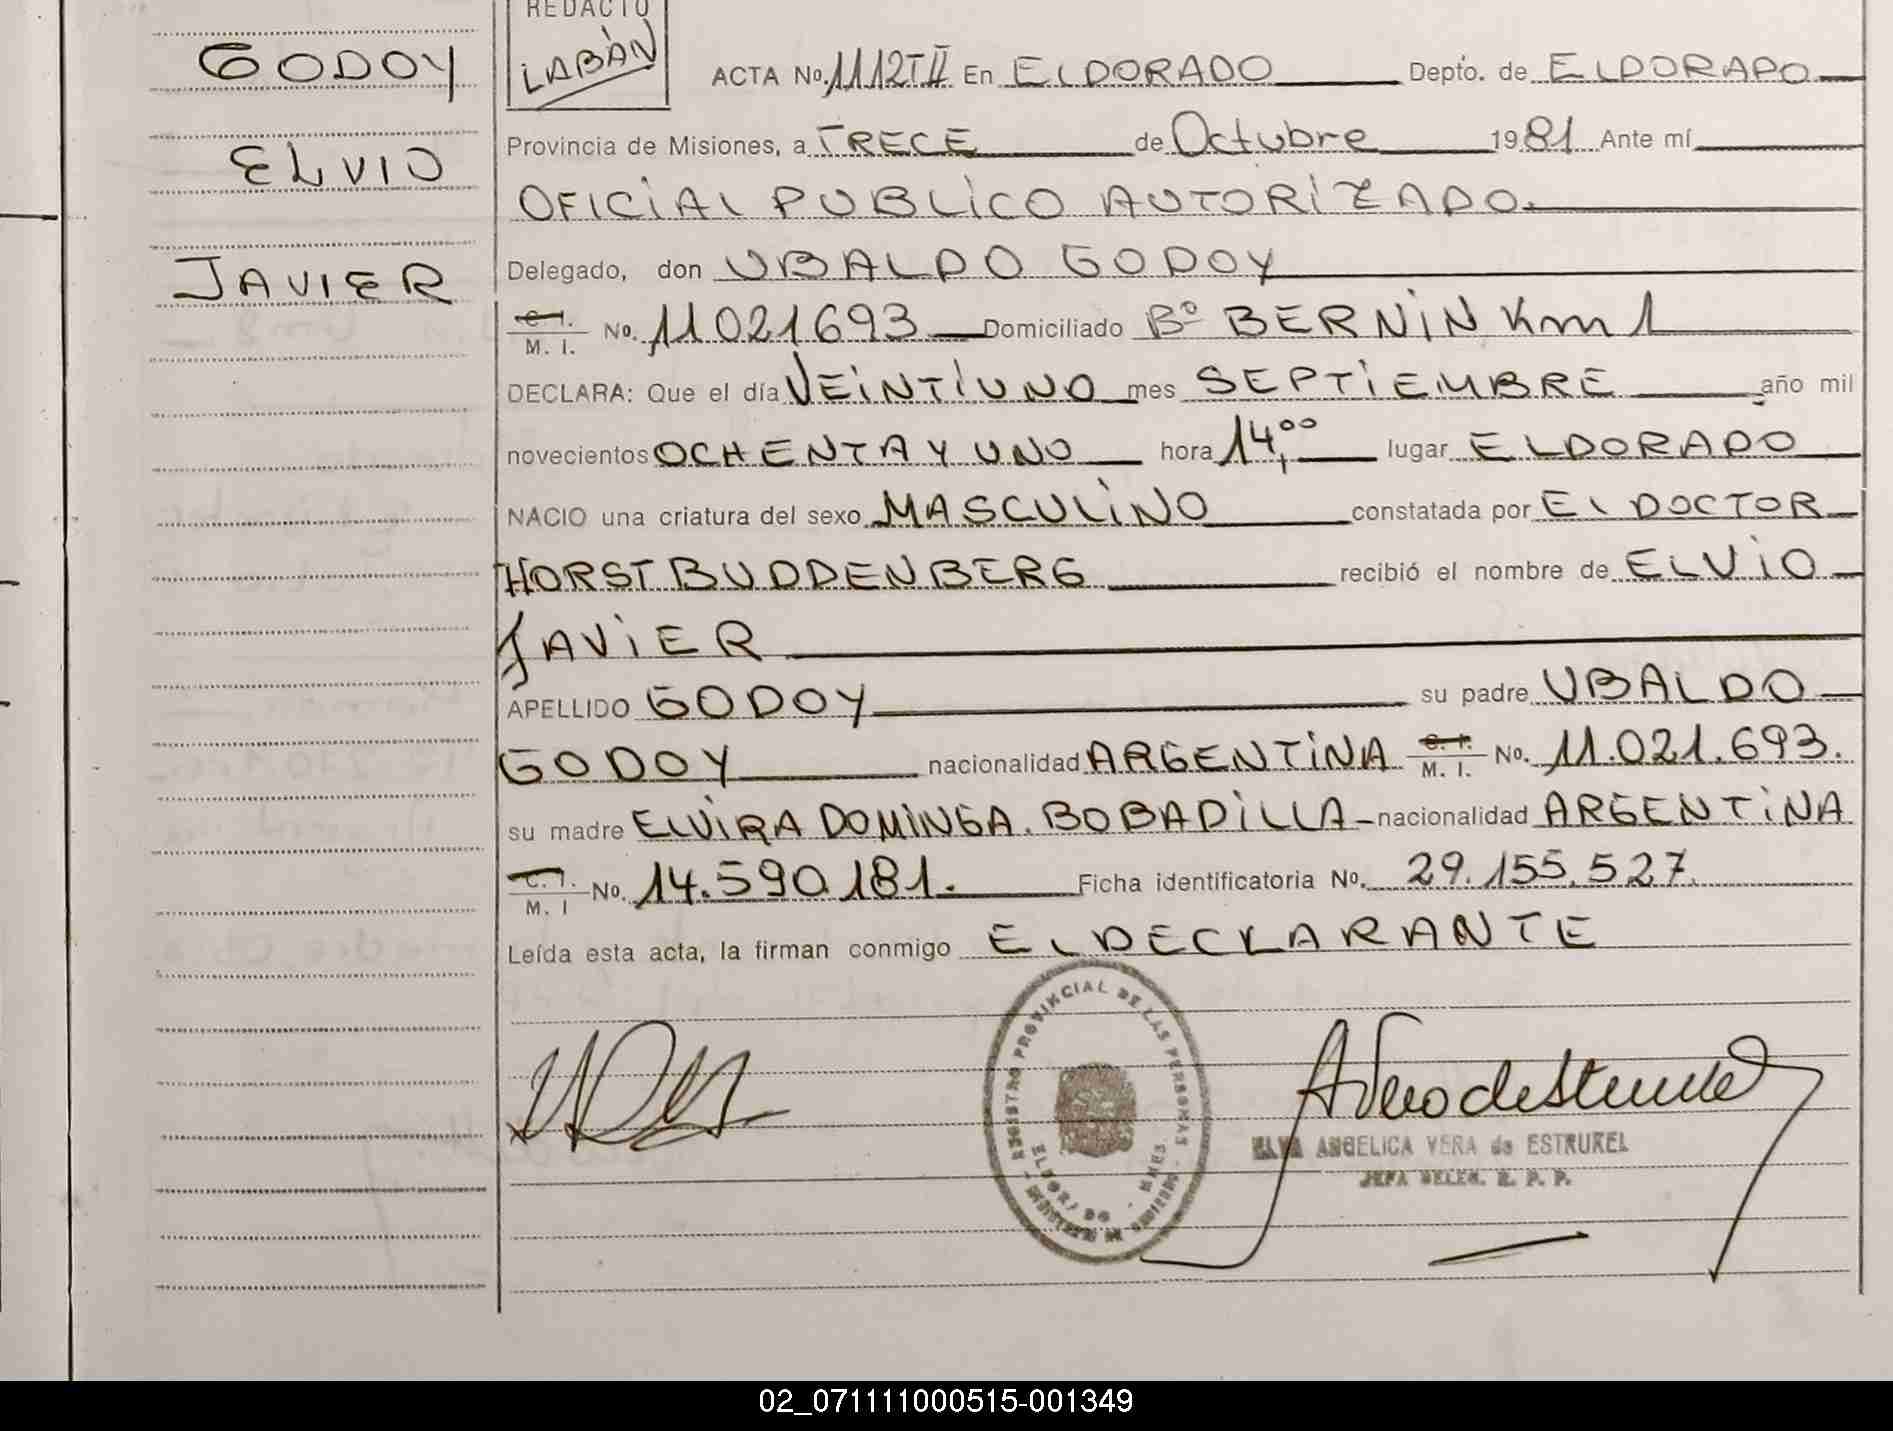 GODOY
ELVIO
JAVIER
REDACTO
LABÁN
ACTA No. 1112TII En ELDORADO Depto. de ELDORADO
Provincia de Misiones, a TRECE de Octubre 1981 Ante mí
OFICIAL PUBLICO AUTORIZADO.
Delegado, don UBALDO GODOY
C. I. M. I. No. 11021693 Domiciliado Bº BERNIN Km 1
DECLARA: Que el día VEINTIUNO mes SEPTIEMBRE año mil
novecientos OCHENTA Y UNO hora 14,00 lugar ELDORADO
NACIO una criatura del sexo MASCULINO constatada por EL DOCTOR
HORST BUDDENBERG recibió el nombre de ELVIO
JAVIER
APELLIDO GODOY su padre UBALDO
GODOY nacionalidad ARGENTINA C. I. M. I. No. 11.021.693.
su madre ELVIRA DOMINGA BOBADILLA nacionalidad ARGENTINA
C. I. M. I No. 14.590.181. Ficha identificatoria No. 29.155.527.
Leída esta acta, la firman conmigo EL DECLARANTE
REGISTRO PROVINCIAL DE LAS PERSONAS
ANGELICA VERA de ESTRUKEL
JEFA R. P. P.
02_071111000515-001349